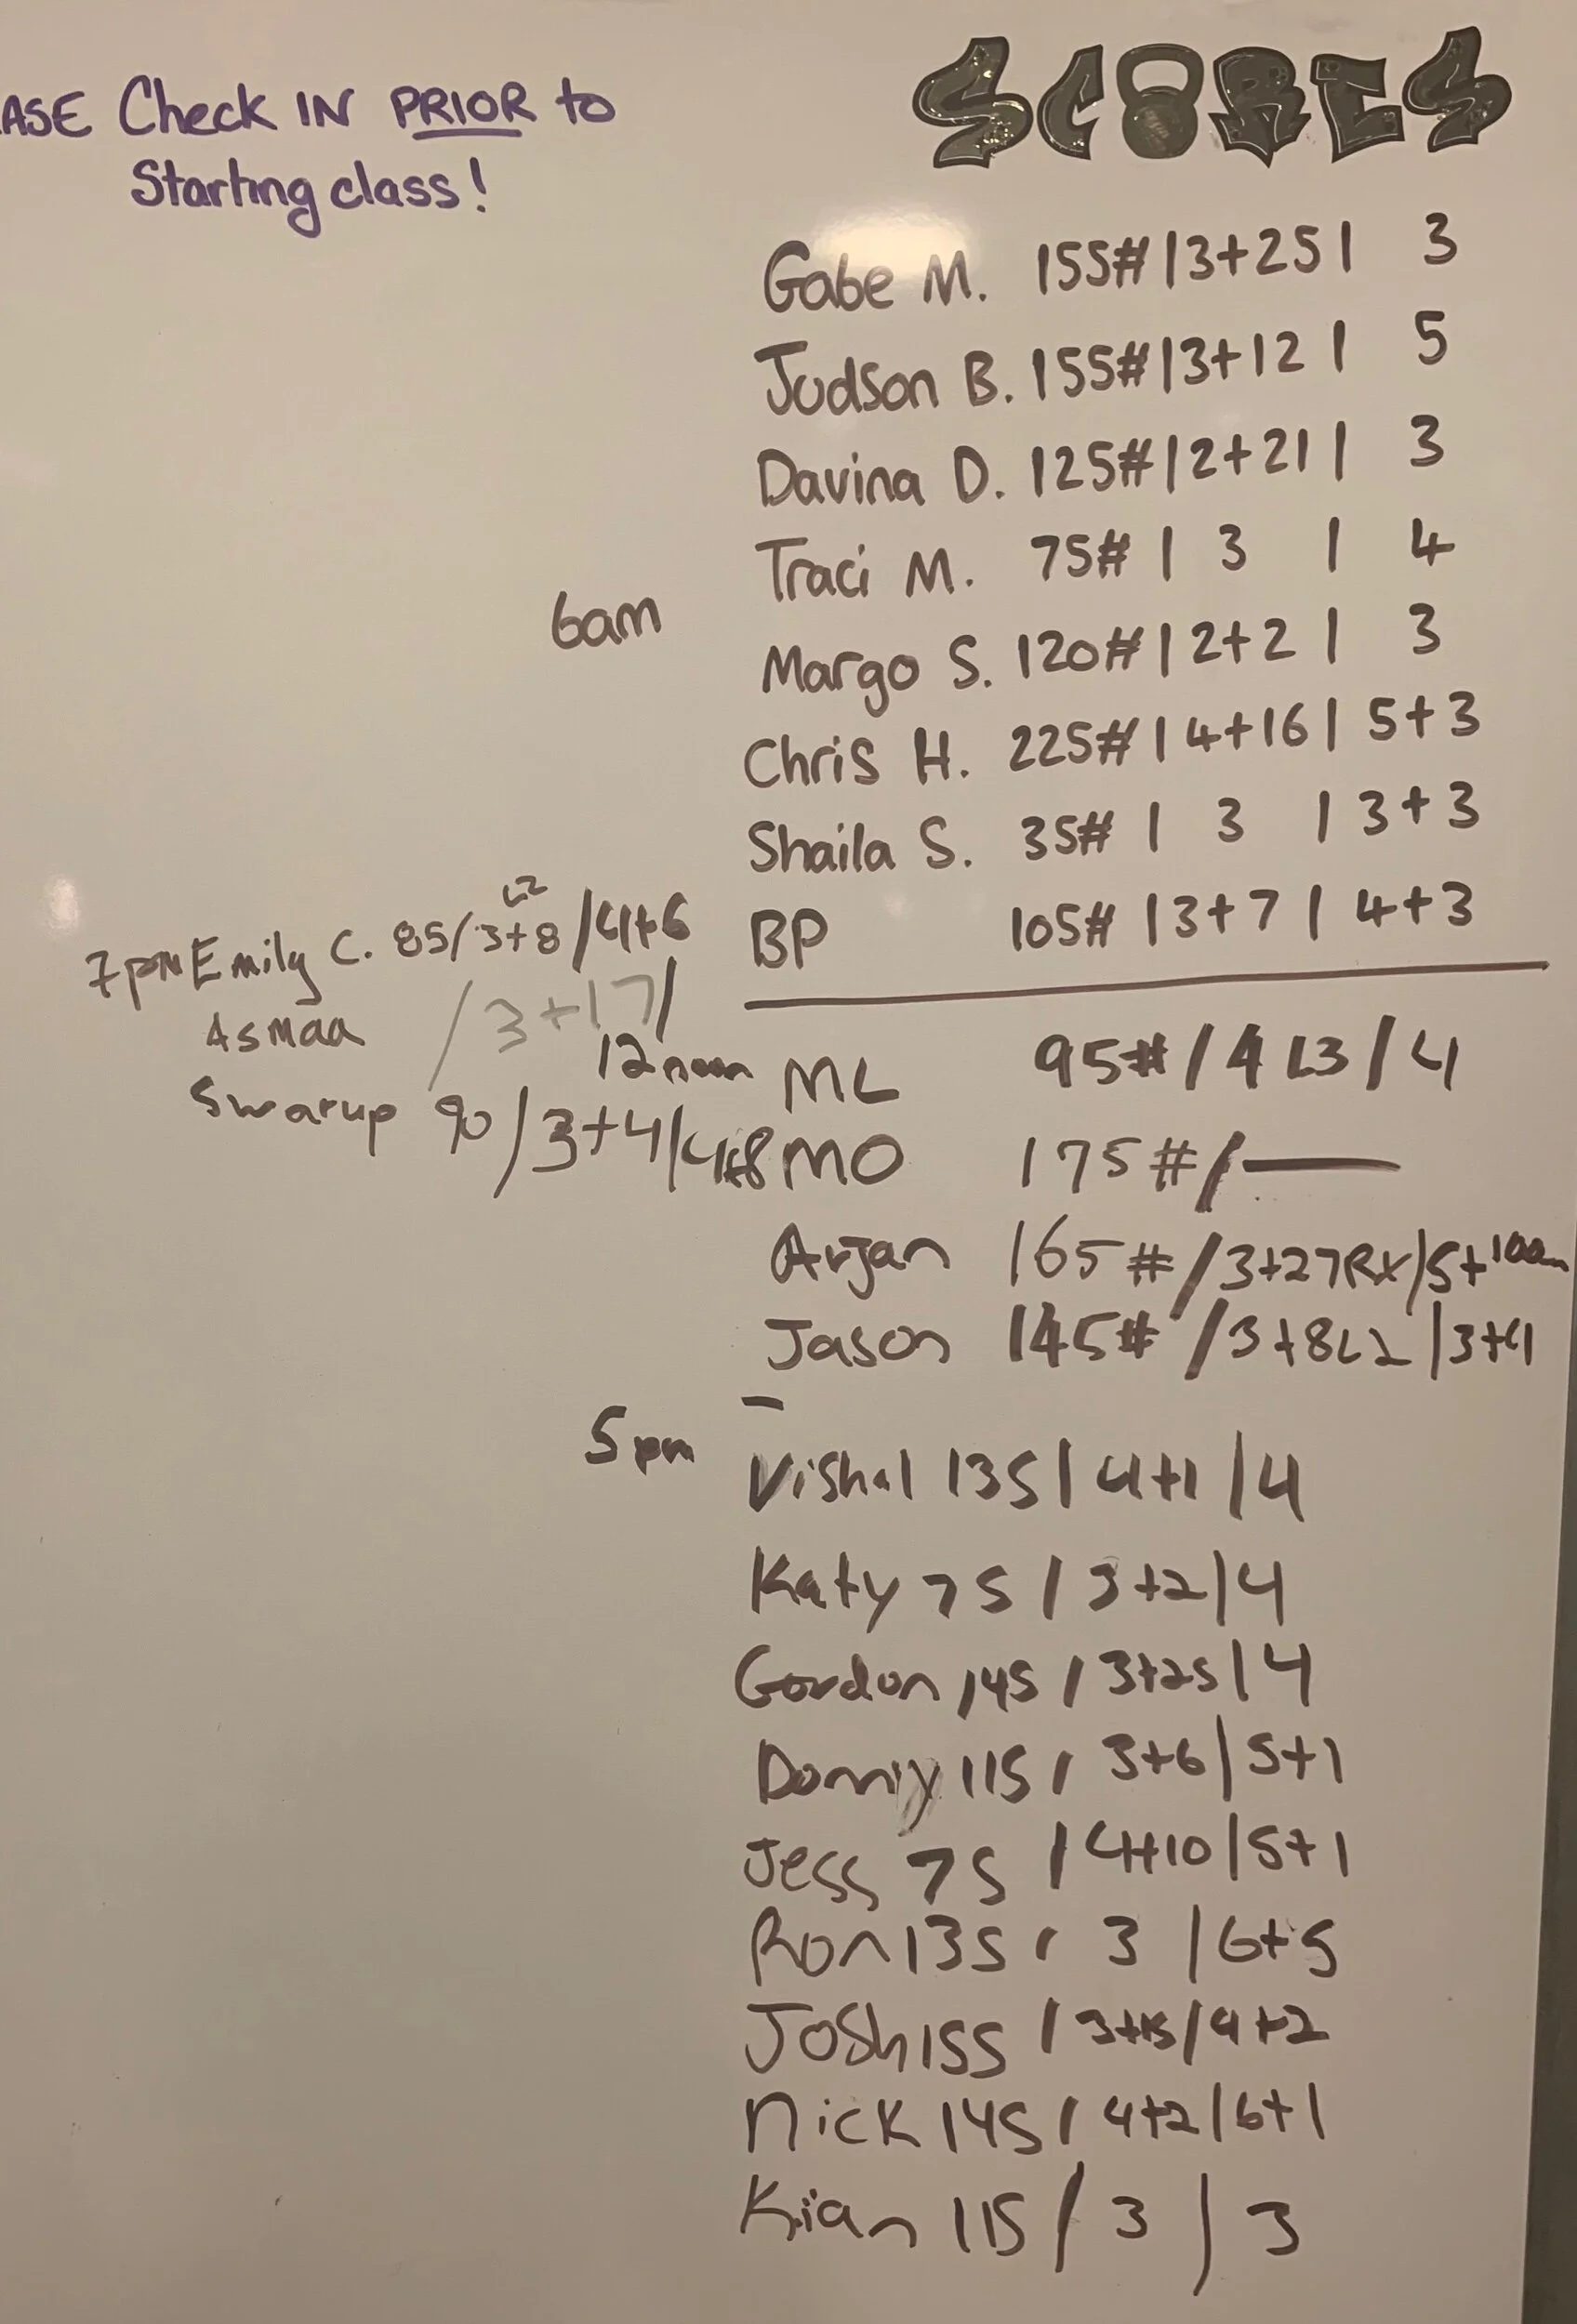 ASE Check IN PRIOR to
Starting class!
SCORES
6am
Gabe M. 155# | 3+25 | 3
Judson B. 155# | 3+12 | 5
Davina D. 125# | 2+21 | 3
Traci M. 75# | 3 | 4
Margo S. 120# | 2+2 | 3
Chris H. 225# | 4+16 | 5+3
Shaila S. 35# | 3 | 3+3
BP 105# | 3+7 | 4+3
12noon
ML 95# / 4 L3 / 4
MO 175# / —
Arjan 165# / 3+27Rx / 5+100m
Jason 145# / 3+8L2 | 3+4
5pm
Vishal 135 | 4+1 | 4
Katy 75 / 3+2 | 4
Gordon 145 / 3+25 | 4
Donny 115 / 3+6 | 5+1
Jess 75 / 4+10 | 5+1
Ron 135 / 3 | 6+5
Josh 155 / 3+15 / 4+2
Nick 145 / 4+2 | 6+1
Kian 115 / 3 | 3
7pm Emily C. 85 / 3+8 L2 / 4+6
Asmaa / 3+17 /
Swarup 90 / 3+4 / 4+8